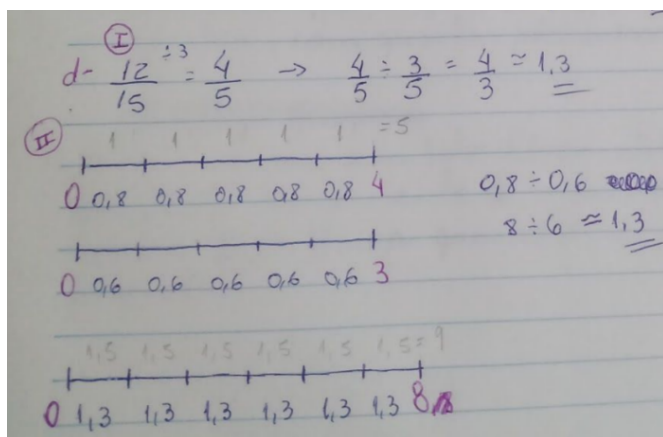 I
d- 12/15 ÷3 = 4/5 → 4/5 ÷ 3/5 = 4/3 ≃ 1,3
II
1 1 1 1 1 = 5
0 0,8 0,8 0,8 0,8 0,8 4
0,8 ÷ 0,6
8 ÷ 6 ≃ 1,3
0 0,6 0,6 0,6 0,6 0,6 3
1,5 1,5 1,5 1,5 1,5 1,5 = 9
0 1,3 1,3 1,3 1,3 1,3 1,3 8